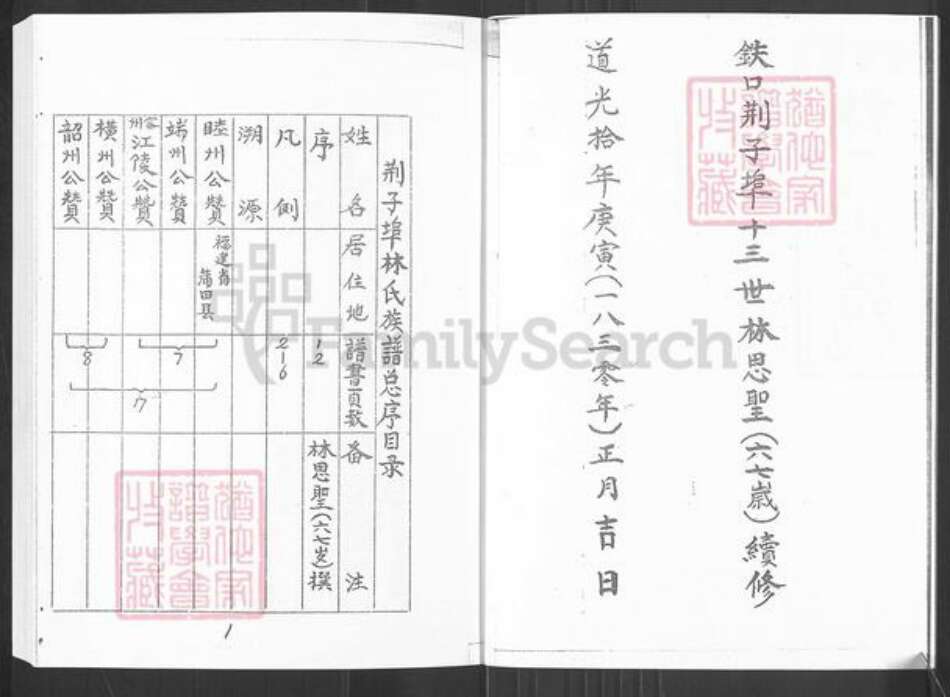 鉄口荆子埠十三世林思聖(六七嵗)續修
道光拾年庚寅(一八三零年)正月吉日
荆子埠林氏族譜总序目录
姓名
居住地
譜書頁数
备注
序
1 2
林思聖(六七岁)撰
凡例
2-6
溯源
睦州公贊
福建省
莆田县
端州公贊
江陵公贊
横州公贊
韶州公贊
7
8
17
1
FamilySearch